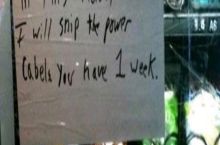 I will snip the power
Cabels you have 1 week.